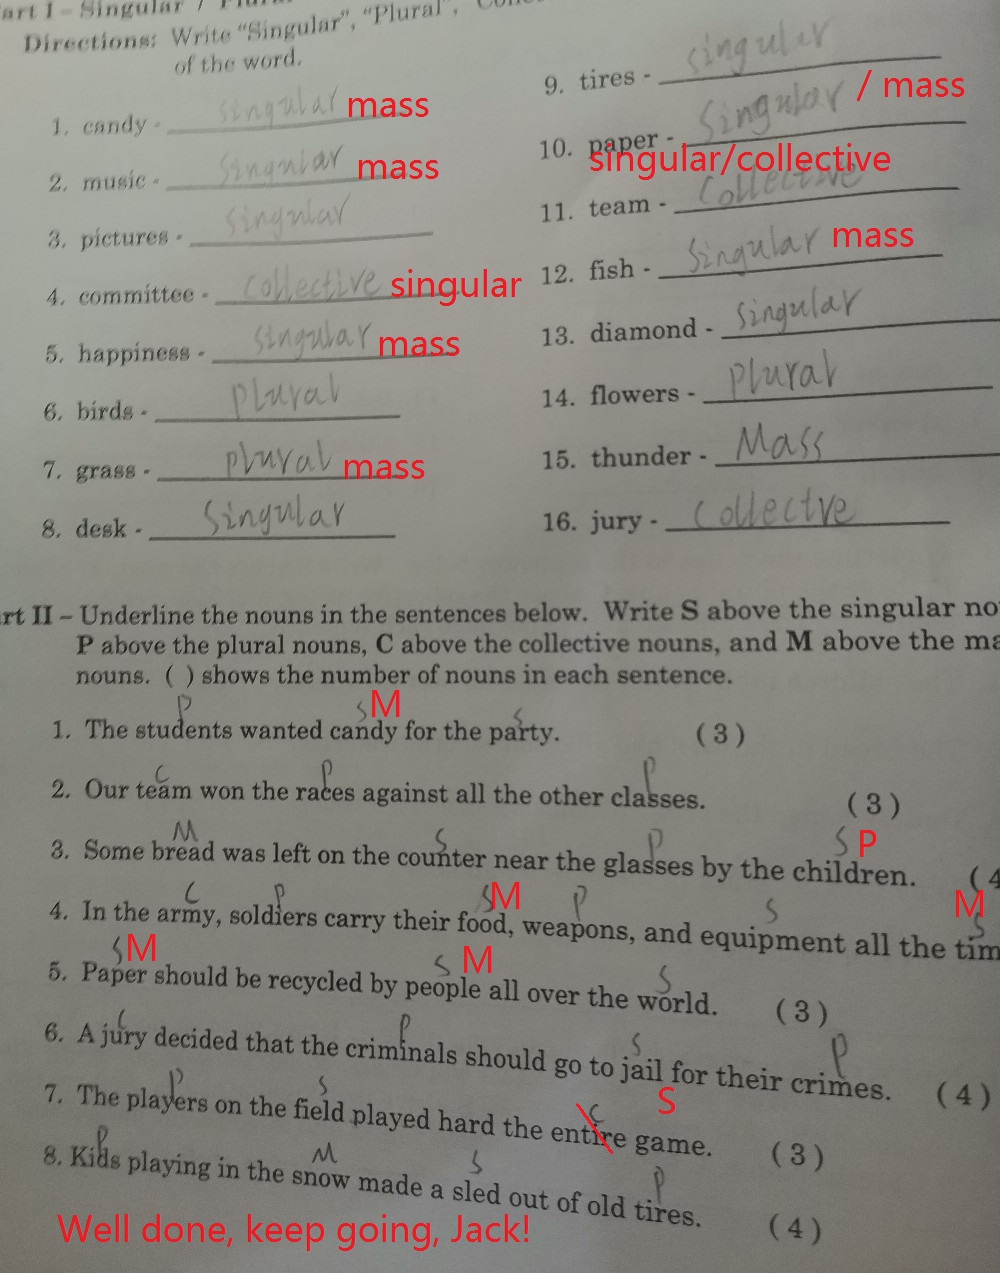 art I - Singular / Plural
Directions: Write "Singular", "Plural",
of the word.
1. candy - singular mass
2. music - singular mass
3. pictures - singular
4. committee - collective singular
5. happiness - singular mass
6. birds - plural
7. grass - plural mass
8. desk - Singular
9. tires - singular
10. paper - Singular / mass
singular/collective
11. team - Collective
12. fish - Singular mass
13. diamond - singular
14. flowers - plural
15. thunder - Mass
16. jury - collectve
rt II - Underline the nouns in the sentences below. Write S above the singular no
P above the plural nouns, C above the collective nouns, and M above the ma
nouns. ( ) shows the number of nouns in each sentence.
P S M S
1. The students wanted candy for the party. (3)
C P P
2. Our team won the races against all the other classes. (3)
M S P S P
3. Some bread was left on the counter near the glasses by the children. (4
C P S M P S M S
4. In the army, soldiers carry their food, weapons, and equipment all the tim
S M S M S
5. Paper should be recycled by people all over the world. (3)
C P S P
6. A jury decided that the criminals should go to jail for their crimes. (4)
P S C S
7. The players on the field played hard the entire game. (3)
P M S P
8. Kids playing in the snow made a sled out of old tires. (4)
Well done, keep going, Jack!